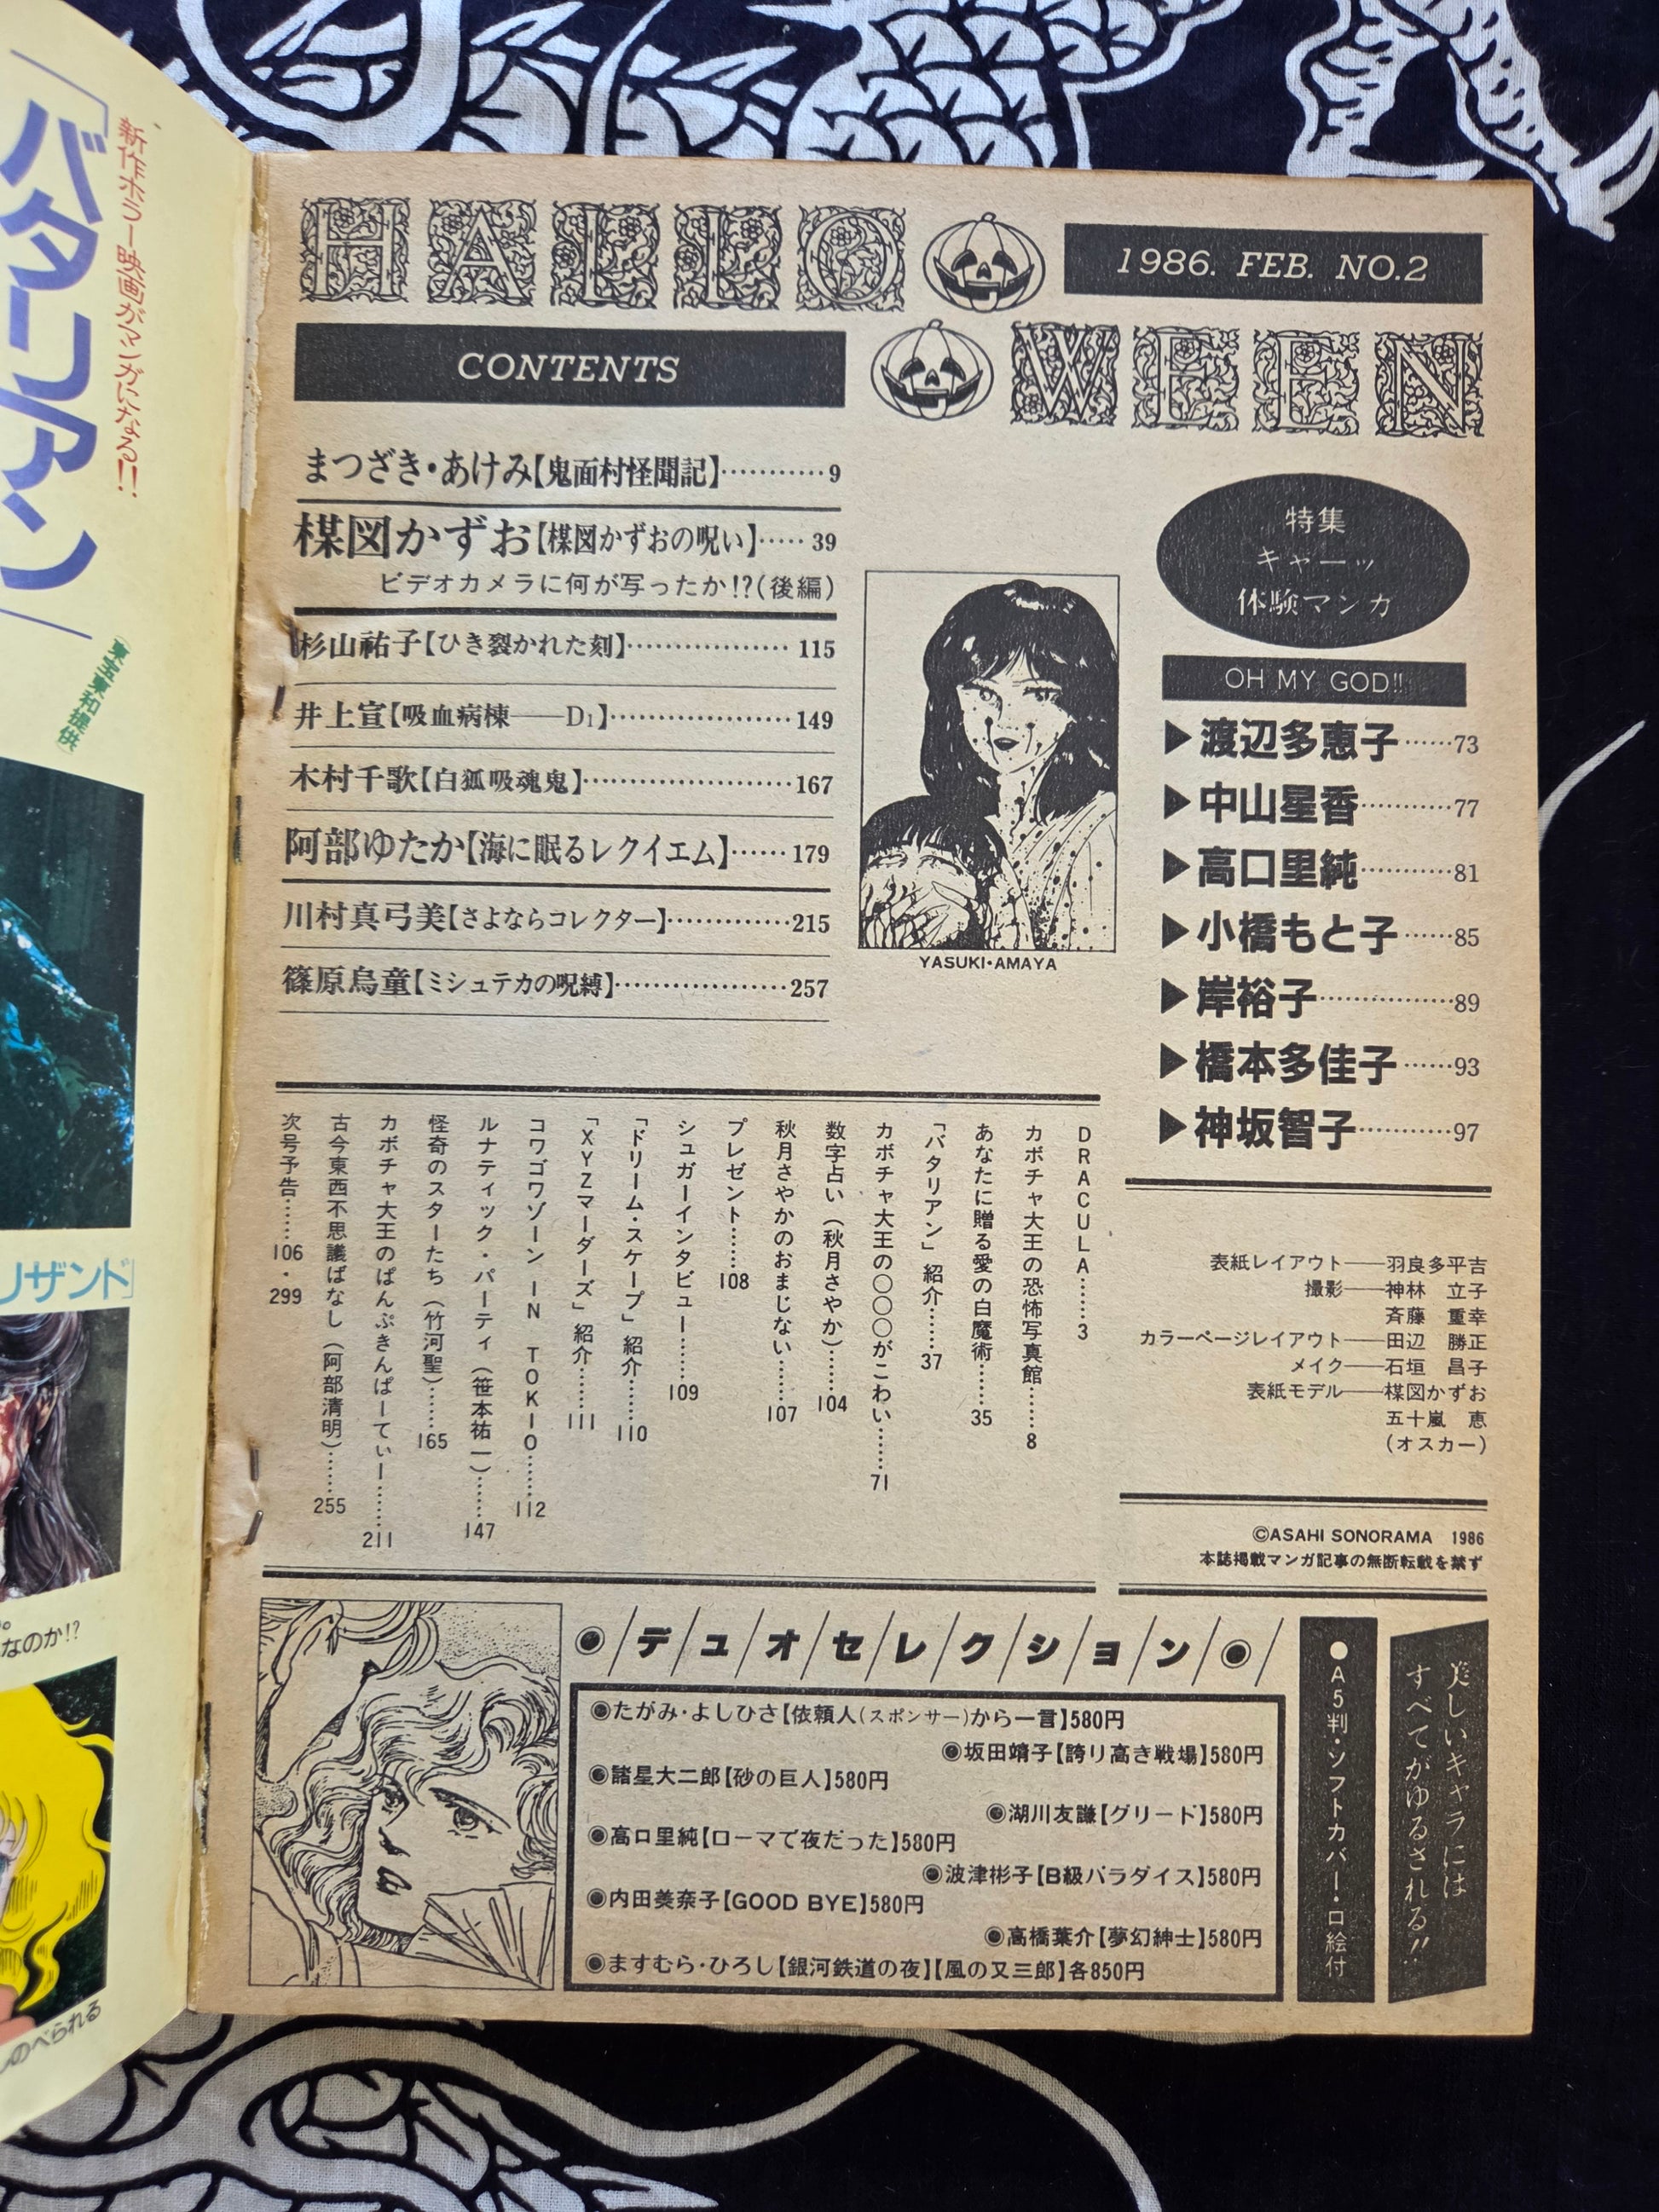 新作ホラー映画がマンガになる!!
「バタリアン」
東宝東和提供
リザンド」
なのか!?
のべられる
HALLO
WEEN
1986. FEB. NO.2
CONTENTS
まつざき・あけみ【鬼面村怪聞記】…………9
楳図かずお【楳図かずおの呪い】……39
ビデオカメラに何が写ったか!?(後編)
杉山祐子【ひき裂かれた刻】………………115
井上宣【吸血病棟――D1】…………………149
木村千歌【白狐吸魂鬼】……………………167
阿部ゆたか【海に眠るレクイエム】……179
川村真弓美【さよならコレクター】…………215
篠原烏童【ミシュテカの呪縛】………………257
YASUKI・AMAYA
特集
キャーッ
体験マンガ
OH MY GOD!!
▶渡辺多恵子……73
▶中山星香…………77
▶高口里純…………81
▶小橋もと子……85
▶岸裕子……………89
▶橋本多佳子……93
▶神坂智子…………97
DRACULA……3
カボチャ大王の恐怖写真館………8
あなたに贈る愛の白魔術………35
「バタリアン」紹介………37
カボチャ大王の〇〇〇がこわい………71
数字占い(秋月さやか)……104
秋月さやかのおまじない………107
プレゼント………108
シュガーインタビュー………109
「ドリーム・スケープ」紹介………110
「XYZマーダーズ」紹介………111
コワゴワゾーン IN TOKIO………112
ルナティック・パーティ(笹本祐一)………147
怪奇のスターたち(竹河聖)………165
カボチャ大王のぱんぷきんぱーてぃー………211
古今東西不思議ばなし(阿部清明)………255
次号予告……106・299
表紙レイアウト――羽良多平吉
撮影――神林 立子
斉藤 重幸
カラーページレイアウト――田辺 勝正
メイク――石垣 昌子
表紙モデル――楳図かずお
五十嵐 恵
(オスカー)
©ASAHI SONORAMA 1986
本誌掲載マンガ記事の無断転載を禁ず
◉デュオセレクション◉
◉たがみ・よしひさ【依頼人(スポンサー)から一言】580円
◉坂田靖子【誇り高き戦場】580円
◉諸星大二郎【砂の巨人】580円
◉湖川友謙【グリード】580円
◉高口里純【ローマで夜だった】580円
◉波津彬子【B級パラダイス】580円
◉内田美奈子【GOOD BYE】580円
◉高橋葉介【夢幻紳士】580円
◉ますむら・ひろし【銀河鉄道の夜】【風の又三郎】各850円
●A5判・ソフトカバー・口絵付
美しいキャラには
すべてがゆるされる!!